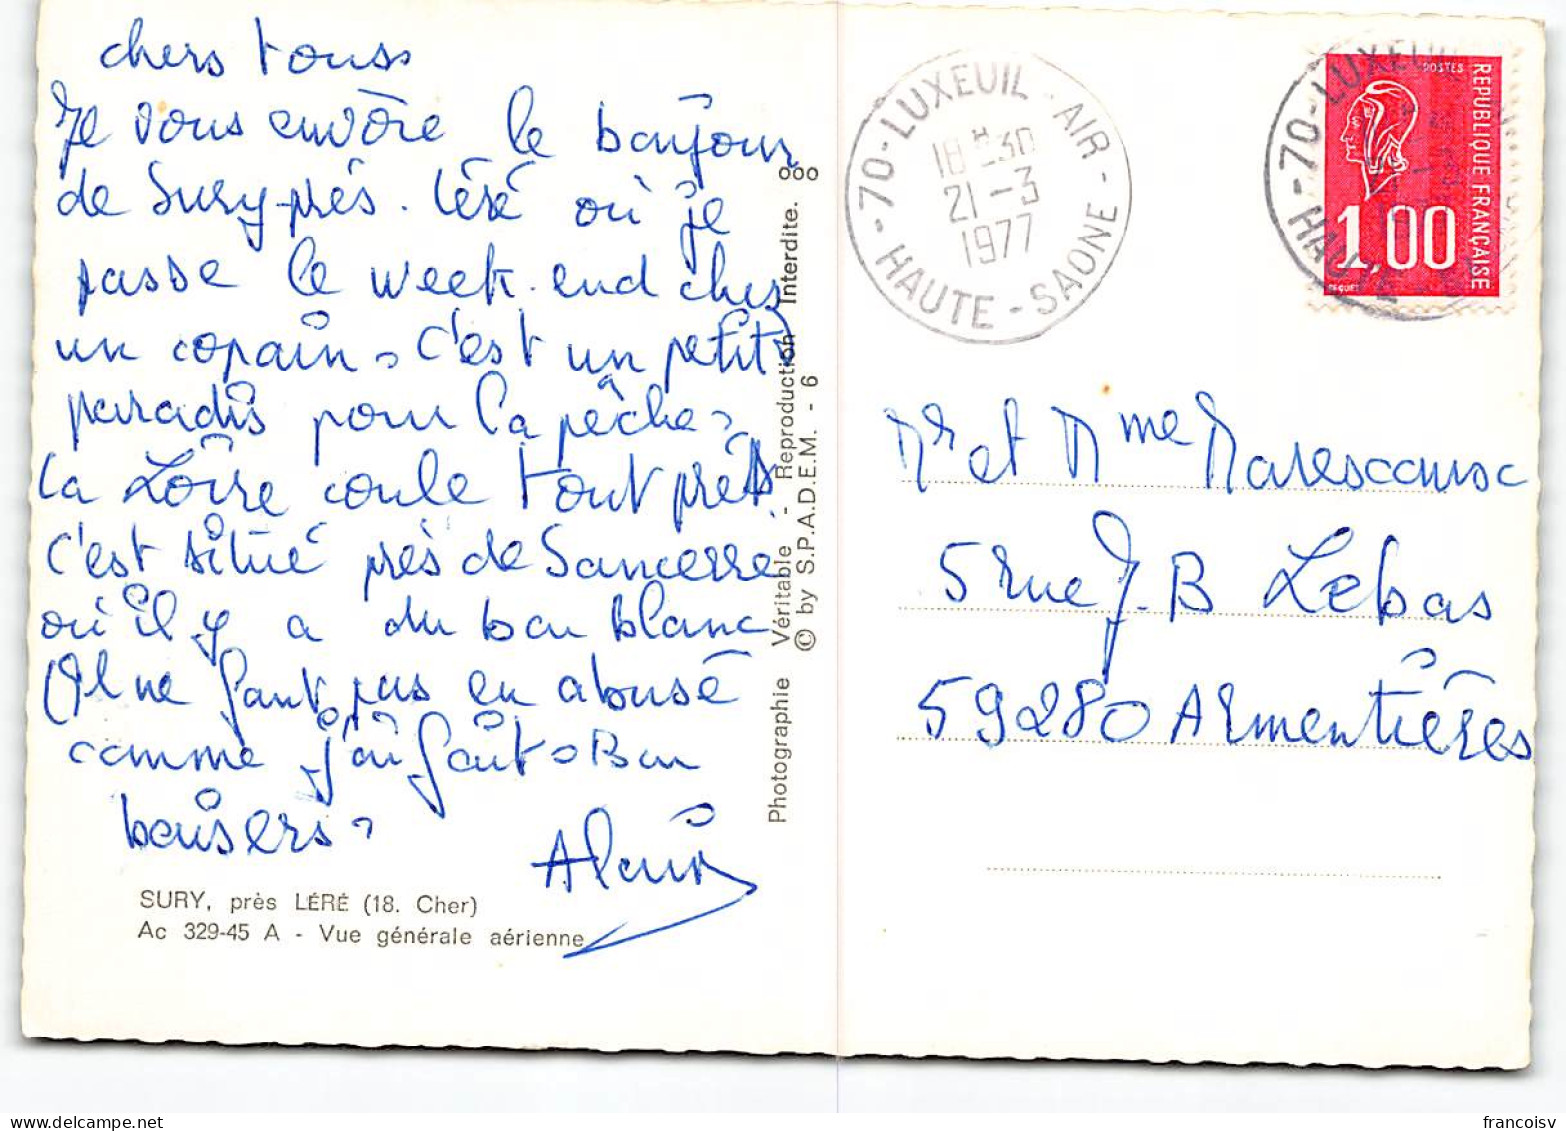 chers tous
Je vous envoie le bonjour
de Sury-près-Léré où je
passe le week-end chez
un copain. C'est un petit
paradis pour la pêche.
La Loire coule tout près.
C'est situé près de Sancerre
où il y a du bon blanc
Il ne faut pas en abusé
comme j'ai fait. Bon
baisers.
Alain
SURY, près LÉRÉ (18. Cher)
Ac 329-45 A - Vue générale aérienne
Photographie Véritable - Reproduction Interdite.
© by S.P.A.D.E.M. - 6
70-LUXEUIL-AIR-HAUTE-SAONE
18H30
21-3
1977
70-LUXEUIL
HAUTE
POSTES
REPUBLIQUE FRANÇAISE
1,00
Mr et Mme Marescaux
5 rue J.B Lebas
59280 Armentières
francoisv
www.delcampe.net